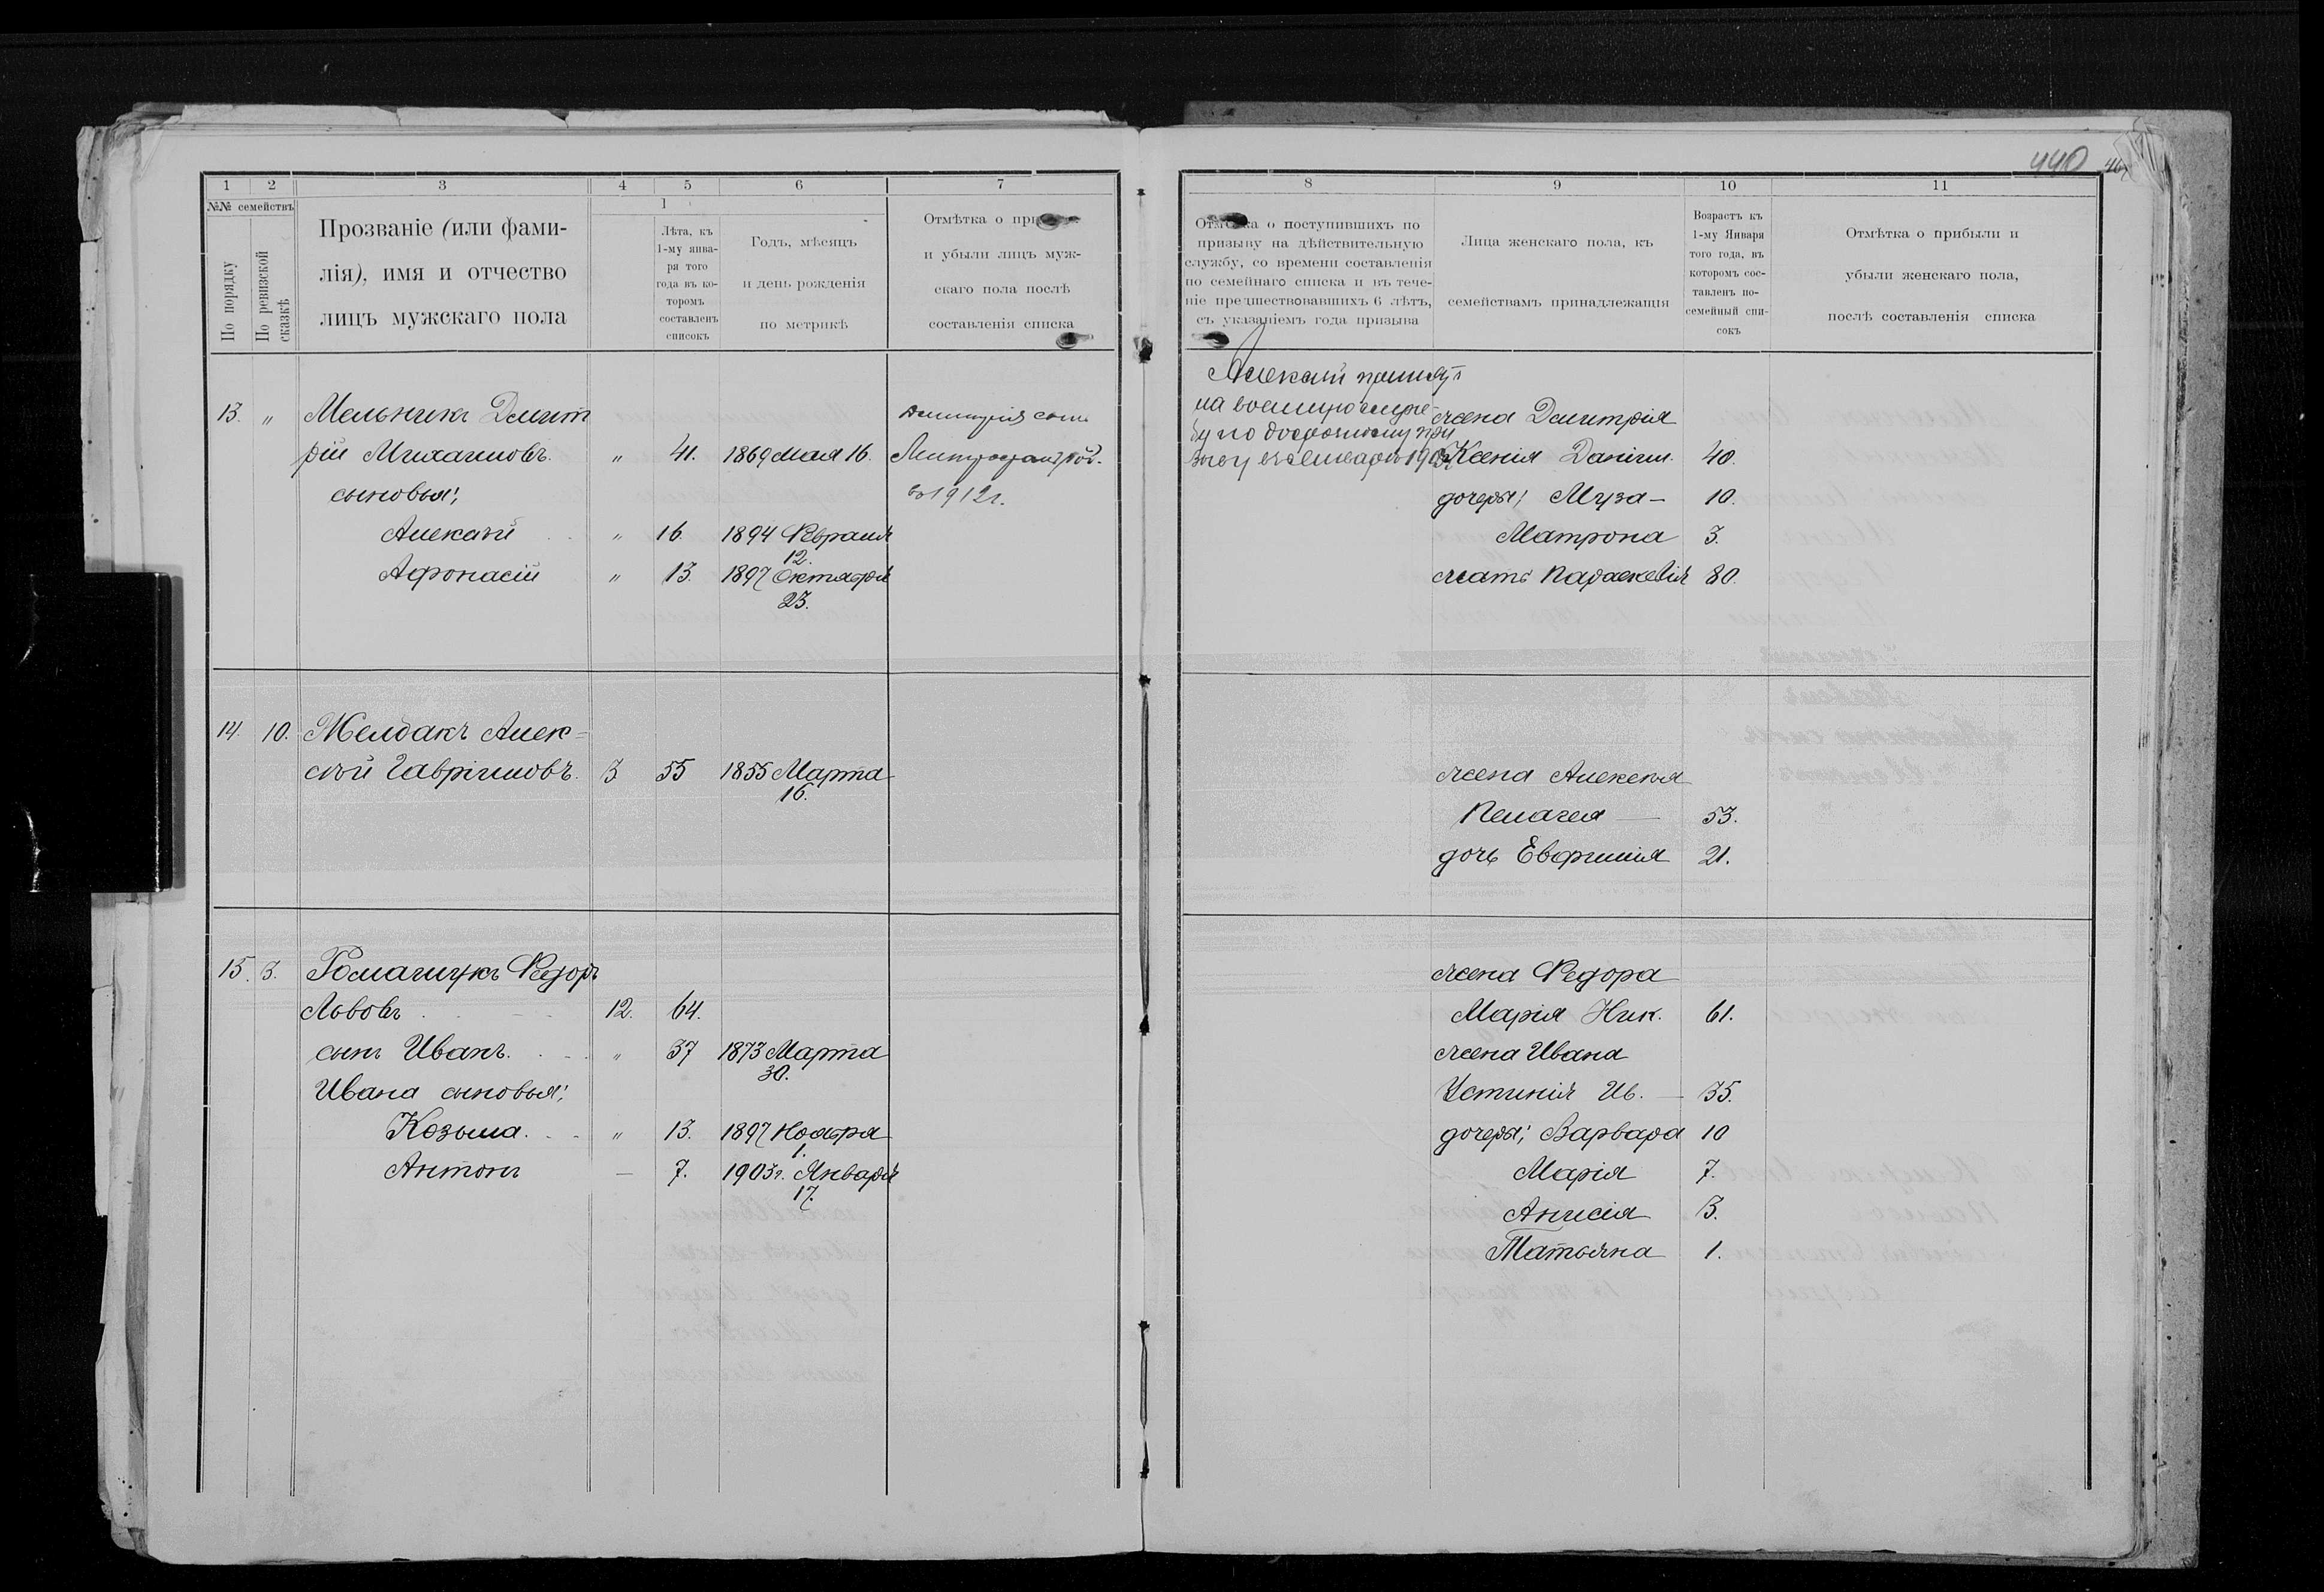 440
1 2 3 4 5 6 7
№№ семействъ
По порядку
По ревизской сказкѣ
Прозваніе (или фами-
лія), имя и отчество
лицъ мужскаго пола
1
Лѣта, къ
1-му янва-
ря того
года въ ко-
торомъ
составленъ
списокъ
Годъ, мѣсяцъ
и день рожденія
по метрикѣ
Отмѣтка о
и убыли лицъ муж-
скаго пола послѣ
составленія списка
13. „ Мельникъ Дмит
рій Михаиловъ. „ 41. 1869 мая 16.
сыновья:
Алексѣй „ 16. 1894 Февраля
12.
Афонасій „ 13. 1897 Октября
23.
Дмитрія сынъ
род.
въ 1912 г.
14. 10. Желдакъ Алек=
сѣй Гавріиловъ. 3 55 1855 Марта
16.
15. 3. Романчукъ Федоръ
Львовъ 12. 64.
сынъ Иванъ. „ 37 1873 Марта
30.
Ивана сыновья:
Козьма. „ 13. 1897 Ноября
1.
Антонъ — 7. 1903г. Января
17.
8 9 10 11
Отмѣтка о поступившихъ по
призыву на дѣйствительную
службу, со времени составленія
по семейнаго списка и въ тече-
ніе предшествовавшихъ 6 лѣтъ,
съ указаніемъ года призыва
Лица женскаго пола, къ
семействамъ принадлежащія
Возрастъ къ
1-му Января
того года, въ
которомъ сос-
тавленъ по-
семейный спи-
сокъ
Отмѣтка о прибыли и
убыли женскаго пола,
послѣ составленія списка
Алексѣй принятъ
на военную служ-
бу по досрочному при
зыву въ Январѣ
жена Дмитрія
Ксенія Даніил. 40.
дочери: Муза — 10.
Матрона 3.
мать Параскевія 80.
жена Алексѣя
Пелагея — 53.
дочь Евфимія 21.
жена Федора
Марія Ник. 61.
жена Ивана
Устинія Ив. — 35.
дочери: Варвара 10
Марія 7.
Анисія 3.
Татьяна 1.